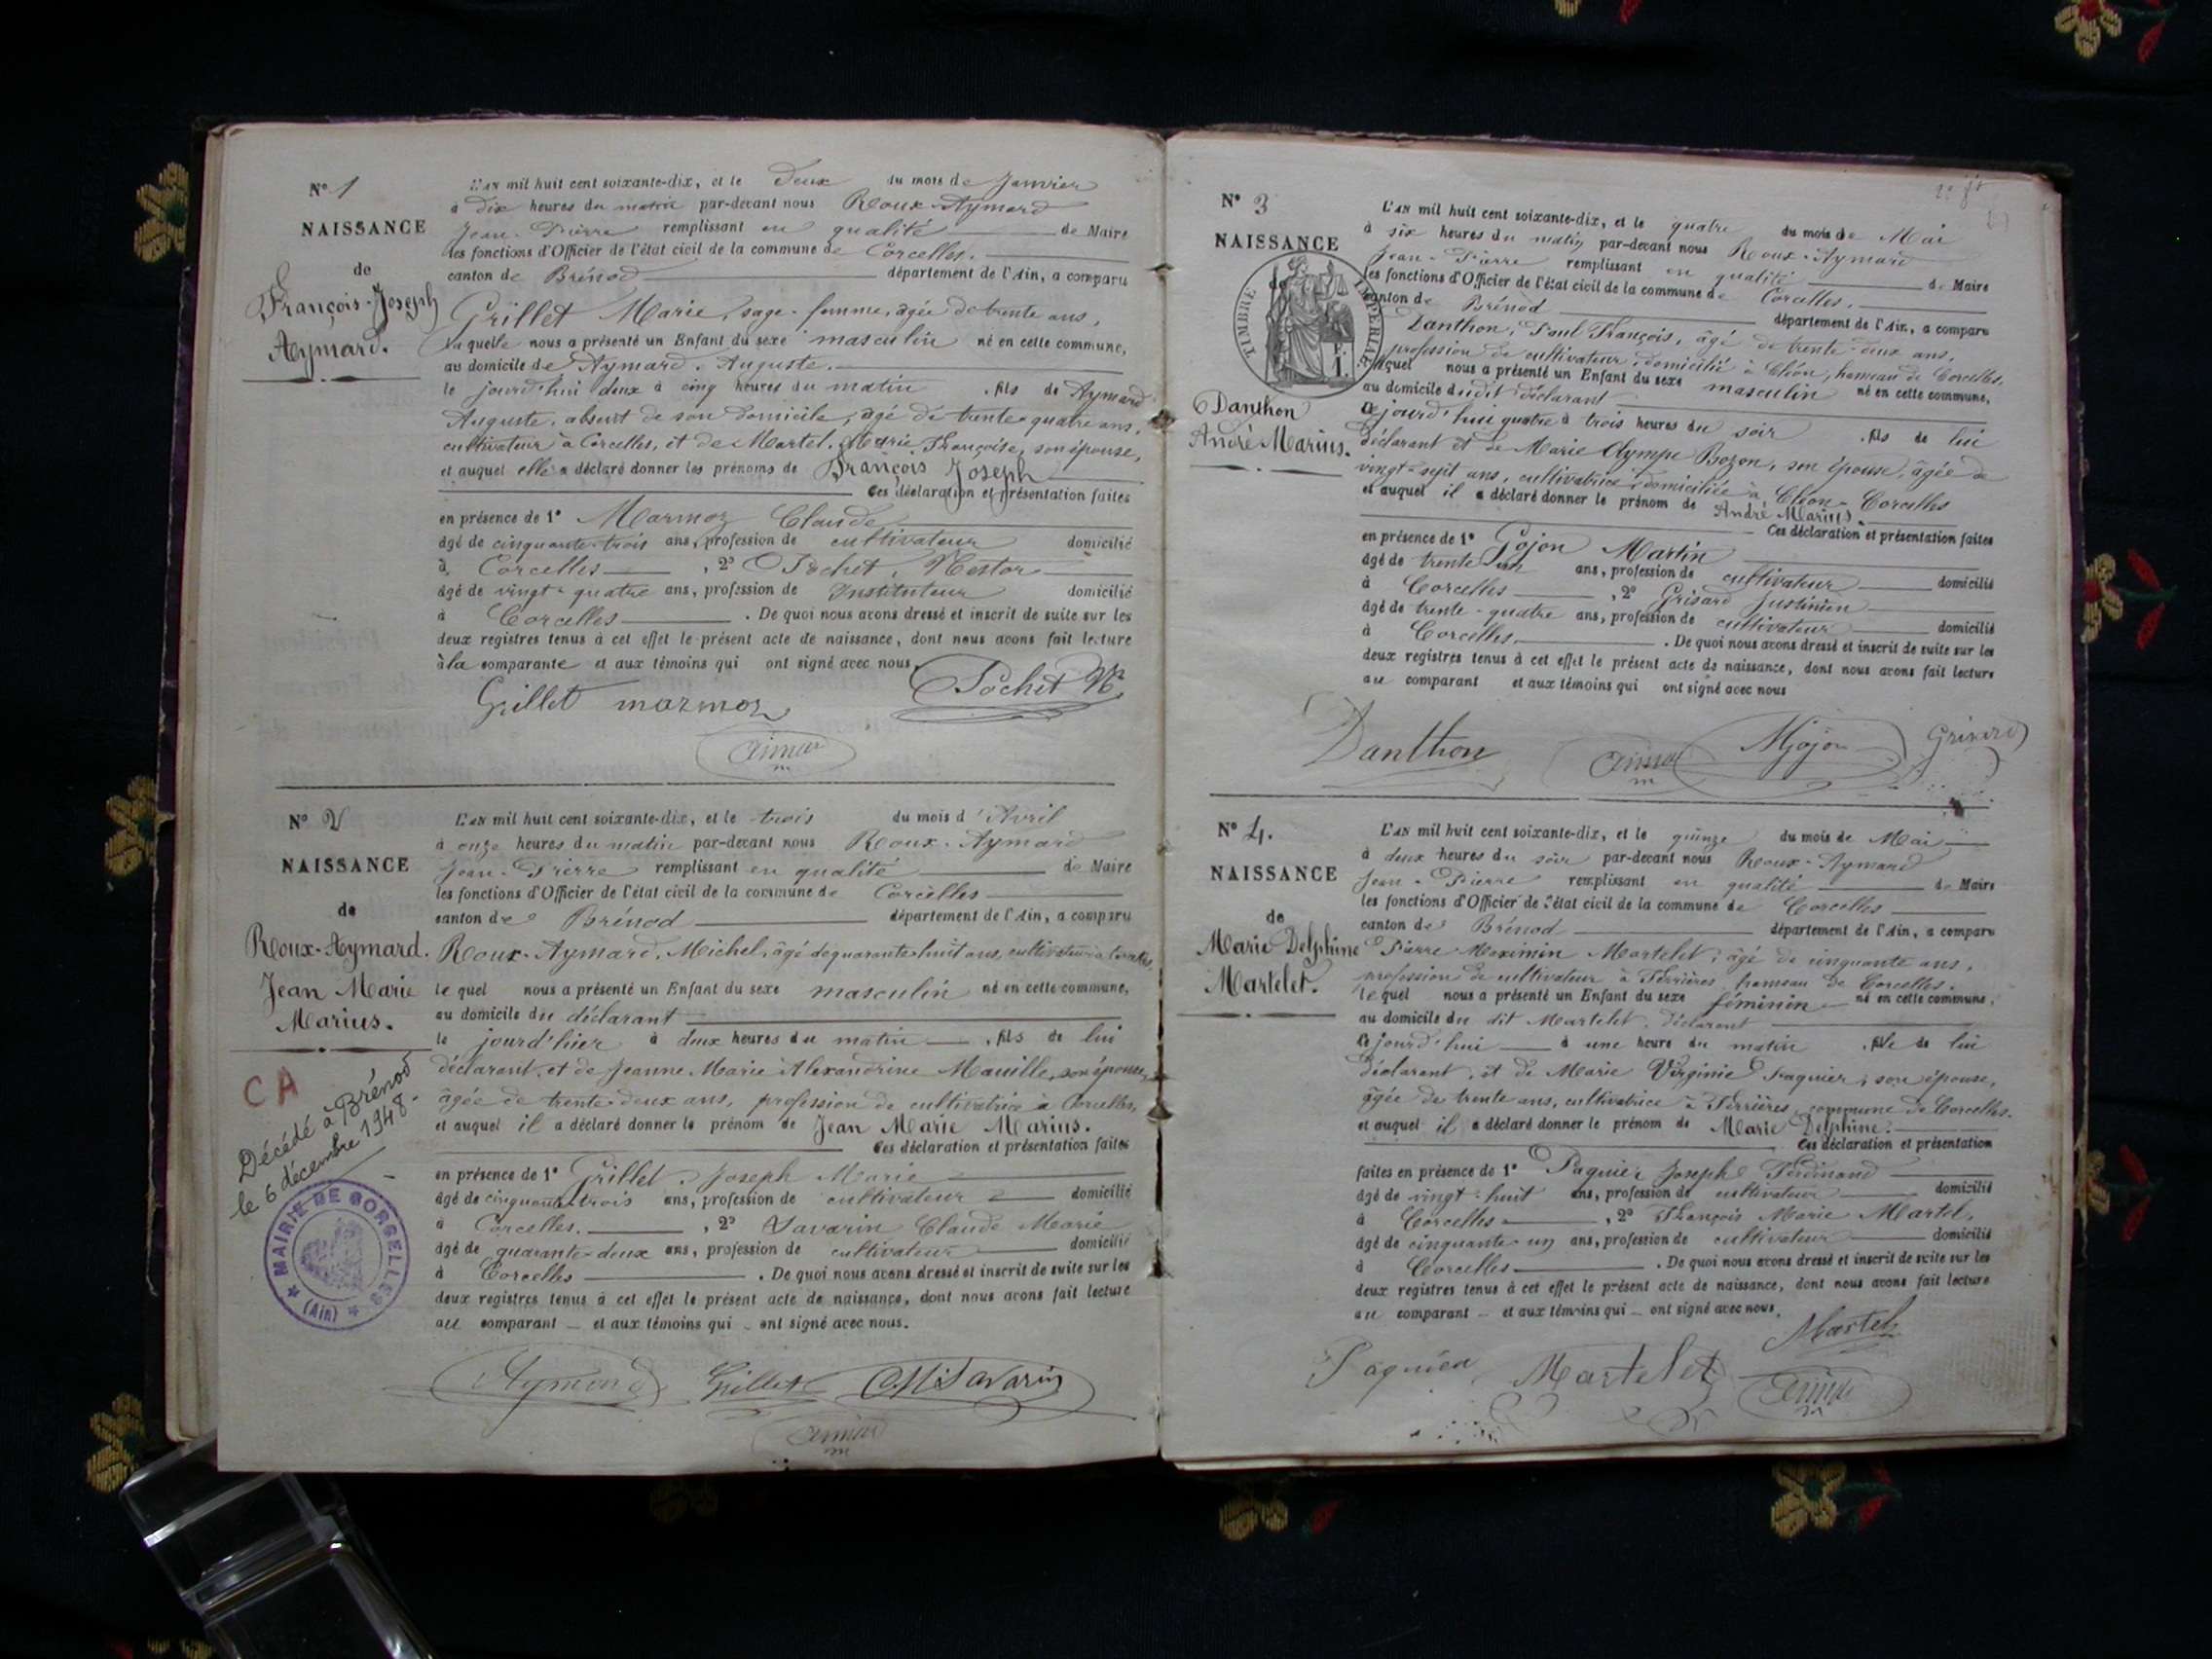 N° 1
NAISSANCE
de
François-Joseph
Aymard.
L'AN mil huit cent soixante-dix, et le deux du mois de Janvier
à dix heures du matin par-devant nous Roux-Aymard
Jean-Pierre remplissant en qualité de Maire
les fonctions d'Officier de l'état civil de la commune de Corcelles.
canton de Brénod département de l'Ain, a comparu
Grillet Marie, sage-femme, agée de trente ans,
laquelle nous a présenté un Enfant du sexe masculin né en cette commune,
au domicile de Aymard. Auguste.
le jourd'hui deux à cinq heures du matin , fils de Aymard
Auguste, absent de son domicile, agé de trente-quatre ans,
cultivateur à Corcelles, et de Martel. Marie Françoise, son épouse,
et auquel elle a déclaré donner les prénoms de François Joseph
Ces déclaration et présentation faites
en présence de 1° Marmoz Claude
âgé de cinquante-trois ans, profession de cultivateur domicilié
à Corcelles , 2° Pochet, Nestor
âgé de vingt-quatre ans, profession de Instituteur domicilié
à Corcelles . De quoi nous avons dressé et inscrit de suite sur les
deux registres tenus à cet effet le présent acte de naissance, dont nous avons fait lecture
à la comparante et aux témoins qui ont signé avec nous.
Grillet marmoz Pochet N.
aimar
N° 2
NAISSANCE
de
Roux-Aymard.
Jean Marie
Marius.
CA
Décédé à Brénod
le 6 décembre 1948.
MAIRIE DE CORCELLES
(Ain)
L'AN mil huit cent soixante-dix, et le trois du mois d'Avril
à onze heures du matin par-devant nous Roux-Aymard
Jean-Pierre remplissant en qualité de Maire
les fonctions d'Officier de l'état civil de la commune de Corcelles
canton de Brénod département de l'Ain, a comparu
Roux-Aymard, Michel, âgé de quarante-huit ans, cultivateur à Corcelles,
lequel nous a présenté un Enfant du sexe masculin né en cette commune,
au domicile du déclarant
le jourd'hier à deux heures du matin , fils de lui
déclarant, et de Jeanne Marie Alexandrine Maville, son épouse,
âgée de trente-deux ans, profession de cultivatrice à Corcelles,
et auquel il a déclaré donner le prénom de Jean Marie Marius.
Ces déclaration et présentation faites
en présence de 1° Grillet. Joseph Marie
âgé de cinquante-trois ans, profession de cultivateur domicilié
à Corcelles. , 2° Savarin Claude Marie
âgé de quarante-deux ans, profession de cultivateur domicilié
à Corcelles . De quoi nous avons dressé et inscrit de suite sur les
deux registres tenus à cet effet le présent acte de naissance, dont nous avons fait lecture
au comparant et aux témoins qui ont signé avec nous.
Aymard Grillet C.M. Savarin
aimar
N° 3
NAISSANCE
de
TIMBRE IMPERIAL
Danthon
André Marius.
L'AN mil huit cent soixante-dix, et le quatre du mois de Mai
à six heures du matin par-devant nous Roux-Aymard
Jean-Pierre remplissant en qualité de Maire
les fonctions d'Officier de l'état civil de la commune de Corcelles.
canton de Brénod département de l'Ain, a comparu
Danthon, Paul François, âgé de trente-deux ans,
profession de cultivateur, domicilié à Cléon, hameau de Corcelles,
lequel nous a présenté un Enfant du sexe masculin né en cette commune,
au domicile du dit déclarant
ce jourd'hui quatre à trois heures du soir , fils de lui
déclarant et de Marie Olympe Bozon, son épouse, âgée de
vingt-sept ans, cultivatrice, domiciliée à Cléon-Corcelles
et auquel il a déclaré donner le prénom de André Marius.
Ces déclaration et présentation faites
en présence de 1° Gojon Martin
âgé de trente un ans, profession de cultivateur domicilié
à Corcelles , 2° Grisard Justinien
âgé de trente-quatre ans, profession de cultivateur domicilié
à Corcelles . De quoi nous avons dressé et inscrit de suite sur les
deux registres tenus à cet effet le présent acte de naissance, dont nous avons fait lecture
au comparant et aux témoins qui ont signé avec nous
Danthon aimar Mgojon Grisard
N° 4.
NAISSANCE
de
Marie Delphine
Martelet.
L'AN mil huit cent soixante-dix, et le quinze du mois de Mai
à deux heures du soir par-devant nous Roux-Aymard
Jean-Pierre remplissant en qualité de Maire
les fonctions d'Officier de l'état civil de la commune de Corcelles
canton de Brénod département de l'Ain, a comparu
Pierre Maximin Martelet, âgé de cinquante ans,
profession de cultivateur à Ferrières hameau de Corcelles.
lequel nous a présenté un Enfant du sexe féminin né en cette commune,
au domicile du dit Martelet. déclarant
ce jourd'hui à une heure du matin , fille de lui
déclarant, et de Marie Virginie Paquier, son épouse,
âgée de trente ans, cultivatrice à Ferrières, commune de Corcelles.
et auquel il a déclaré donner le prénom de Marie Delphine.
Ces déclaration et présentation
faites en présence de 1° Paquier Joseph Ferdinand
âgé de vingt-huit ans, profession de cultivateur domicilié
à Corcelles , 2° François Marie Martel,
âgé de cinquante-un ans, profession de cultivateur domicilié
à Corcelles . De quoi nous avons dressé et inscrit de suite sur les
deux registres tenus à cet effet le présent acte de naissance, dont nous avons fait lecture
au comparant et aux témoins qui ont signé avec nous.
Paquier Martelet Martel
aimar